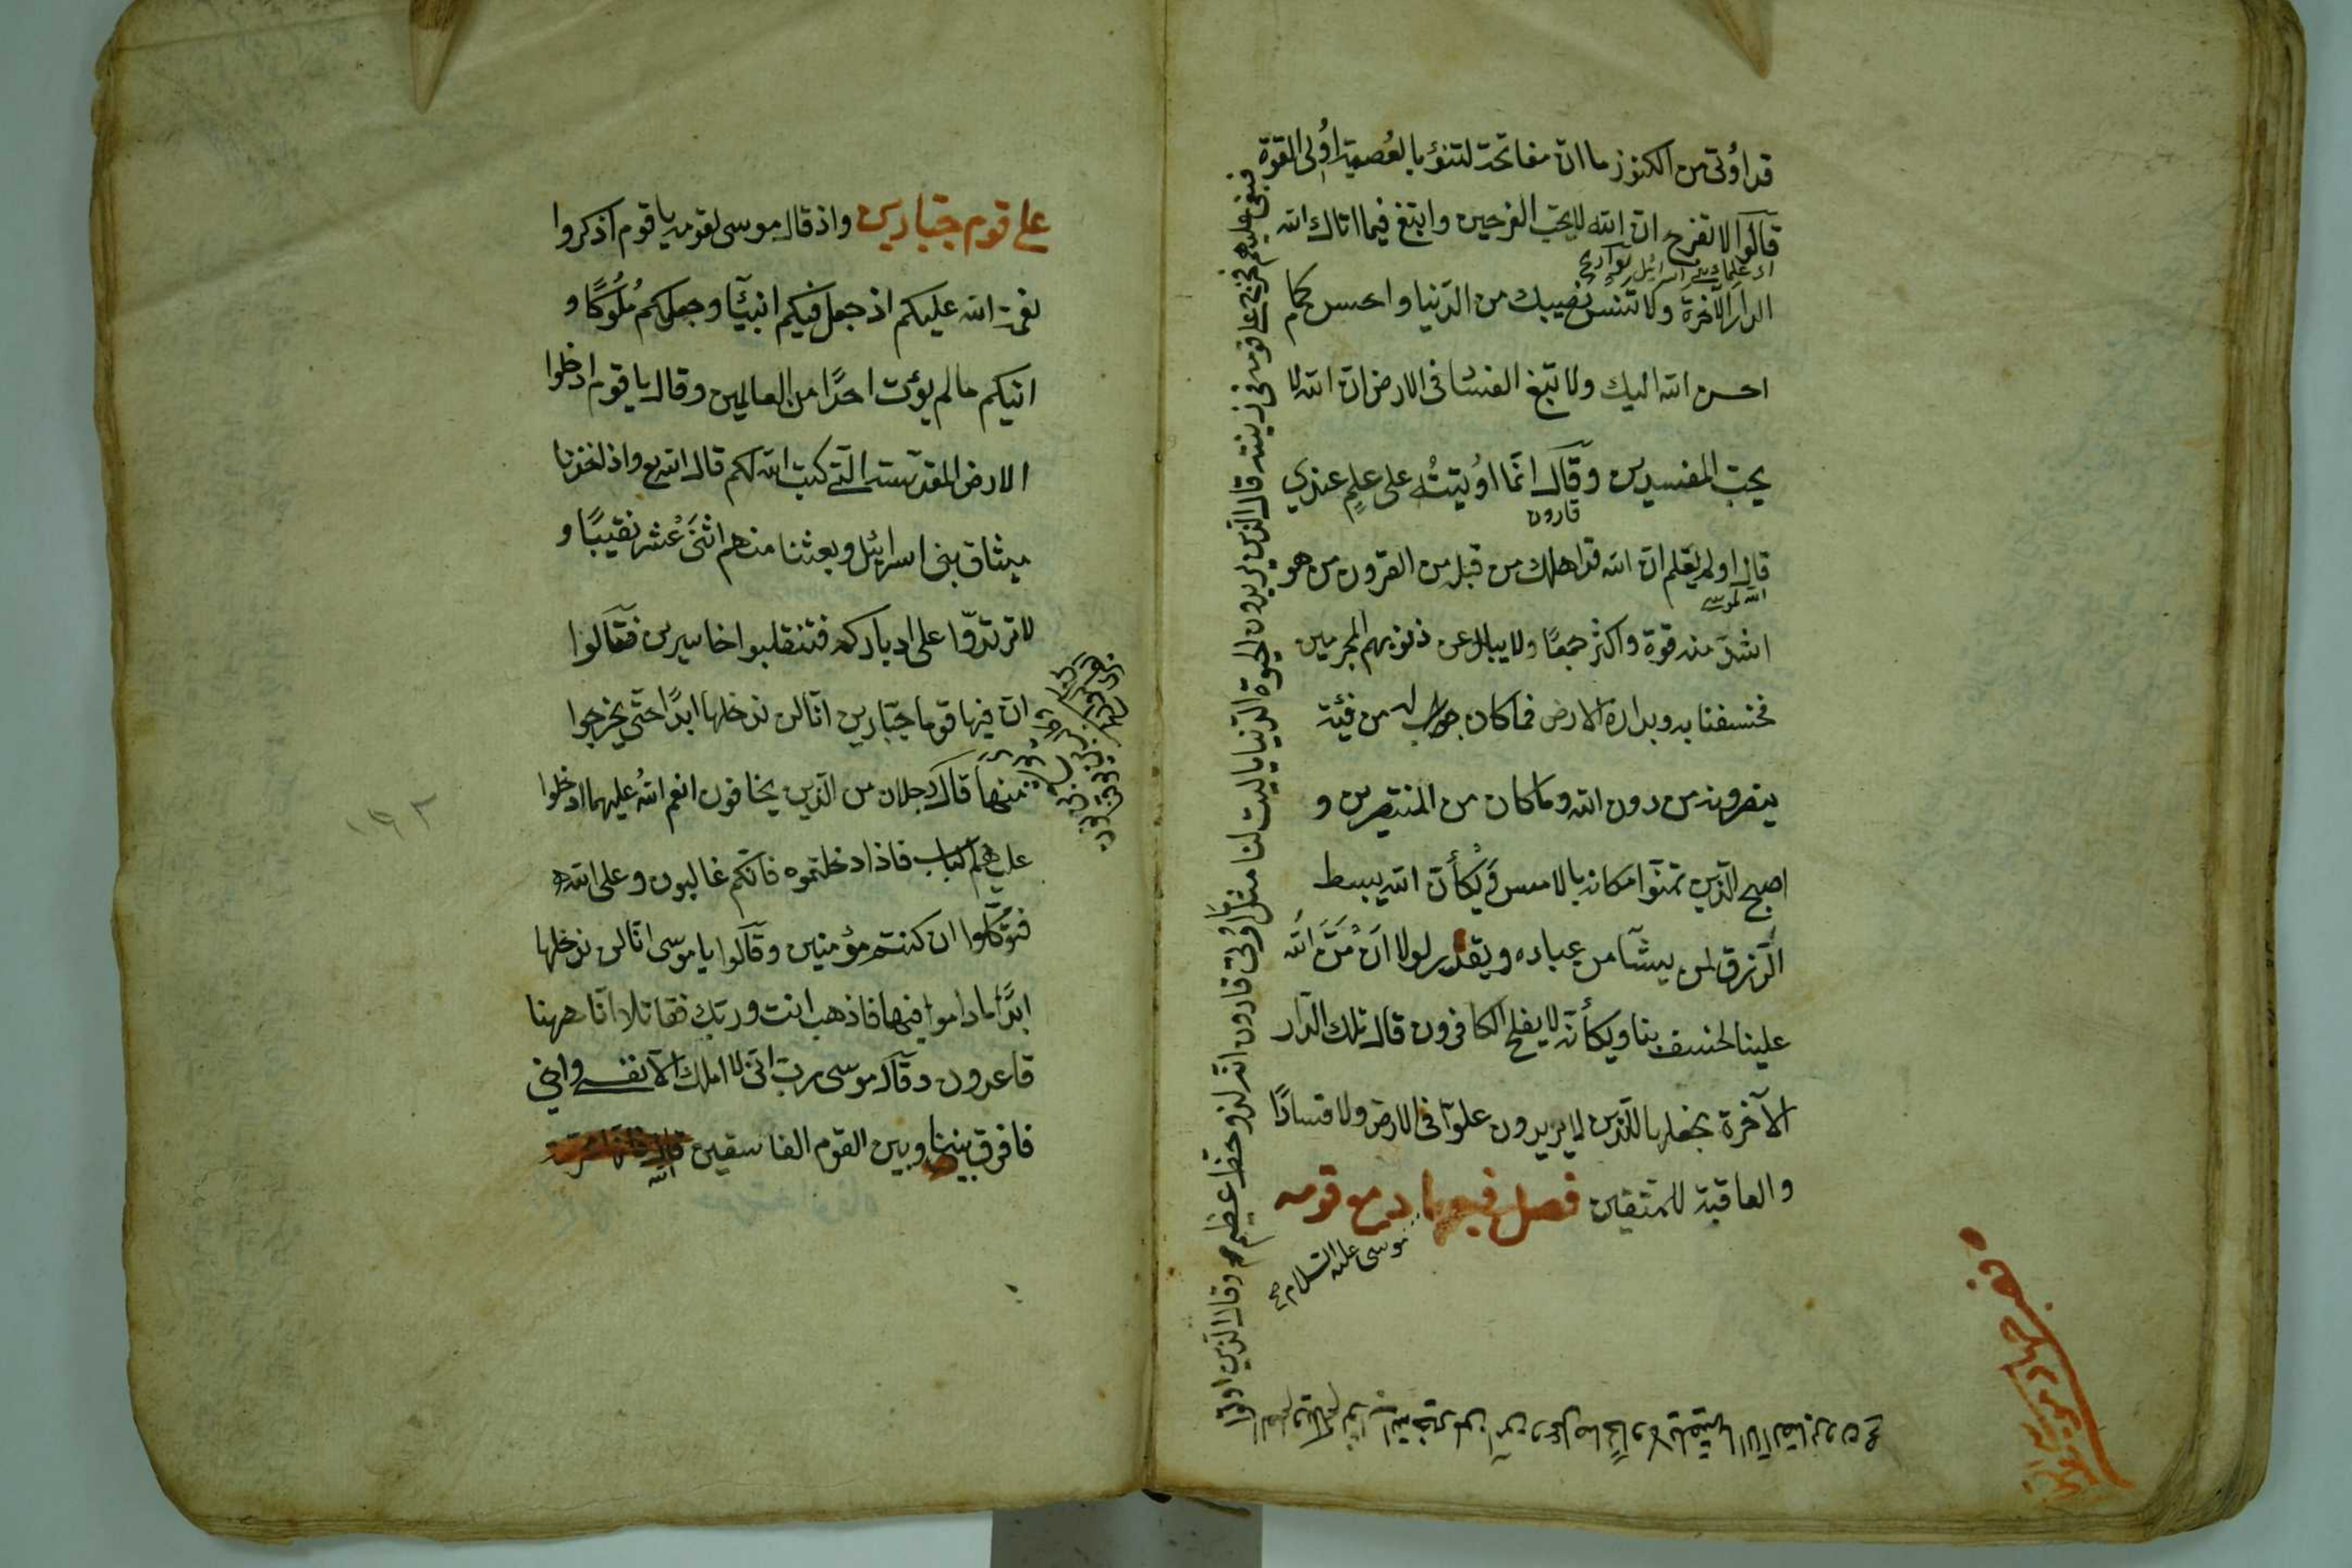 قد اُوتى من الكنوز ما انّ مفاتحه لتنؤ بالعُصبة اُولى القوة
قالوا لا تفرح انّ الله لا يحبّ الفرحين وابتغ فيما اتاك الله
الدار الآخرة ولا تنس نصيبك من الدّنيا واحسن كما
احسن الله اليك ولا تبغ الفسا فى الارض انّ الله لا
يحبّ المفسدين وقال انّما اوُتيتُه على علمٍ عندي
قارون
قال اولم يعلم انّ الله قد اهلك من قبله من القرون من هو
الله لموسى
اشدّ منه قوة واكثر جمعًا ولا يسال عن ذنوبهم المجرمين
فخسفنا به وبداره الارض فما كان له من فئة
ينصرونه من دون الله وما كان من المنتصرين و
اصبح الّذين تمنّوا مكانه بالامس وَيْكأنّ الله يبسط
الرّزق لمن يشآ من عباده ويقدر لولا اَنْ مَنَّ الله
علينا لخسف بنا ويكأنّه لا يفلح الكافرون قال تلك الدّار
الآخرة نجعلها للّذين لا يريدون علوّا فى الارض ولا فسادًا
والعاقبة للمتّقين فصل فيما درج قومه
موسى عليه السّلام صح
فبغى عليهم فخرج على قومه فى زينته قال الّذين يريدون الحيوة الدّنيا يا ليت لنا مثل ما اُوتى قارون انّه لذو حظّ عظيم وقال الذين اوتوا
العلم ويلكم ثواب الله خير لمن آمن وعمل صالحًا ولا يلقّيها الّا الصابرون صح
على قوم جبّارين واذ قال موسى لقومه يا قوم اذكروا
نعمة الله عليكم اذ جعل فيكم انبيآ وجعلكم مُلُوكًا و
اتيكم ما لم يؤت احدًا من العالمين وقال يا قوم ادخلوا
الارض المقدّسة الّتى كتب الله لكم قال الله تع واذ اخذنا
ميثاق بنى اسرائيل وبعثنا منهم اثنَىْ عشر نقيبًا و
لا ترتدّوا على ادباركم فتنقلبوا خاسرين فقالوا
انّ فيها قوما جبّارين انّا لن ندخلها ابدًا حتّى يخرجوا
منها قال رجلان من الّذين يخافون انعم الله عليهما ادخلوا
عليهم الباب فاذا دخلتموه فانّكم غالبون وعلى الله
فتوكّلوا ان كنتم مؤمنين وقالوا يا موسى انّا لن ندخلها
ابدًا ما داموا فيها فاذهب انت وربّك فقاتلا انّا ههنا
قاعدون وقال موسى ربّ انّى لا املك الّا نفسى واخي
فافرق بيننا وبين القوم الفاسقين قال فانّها محرّمة
الله
١٩٢